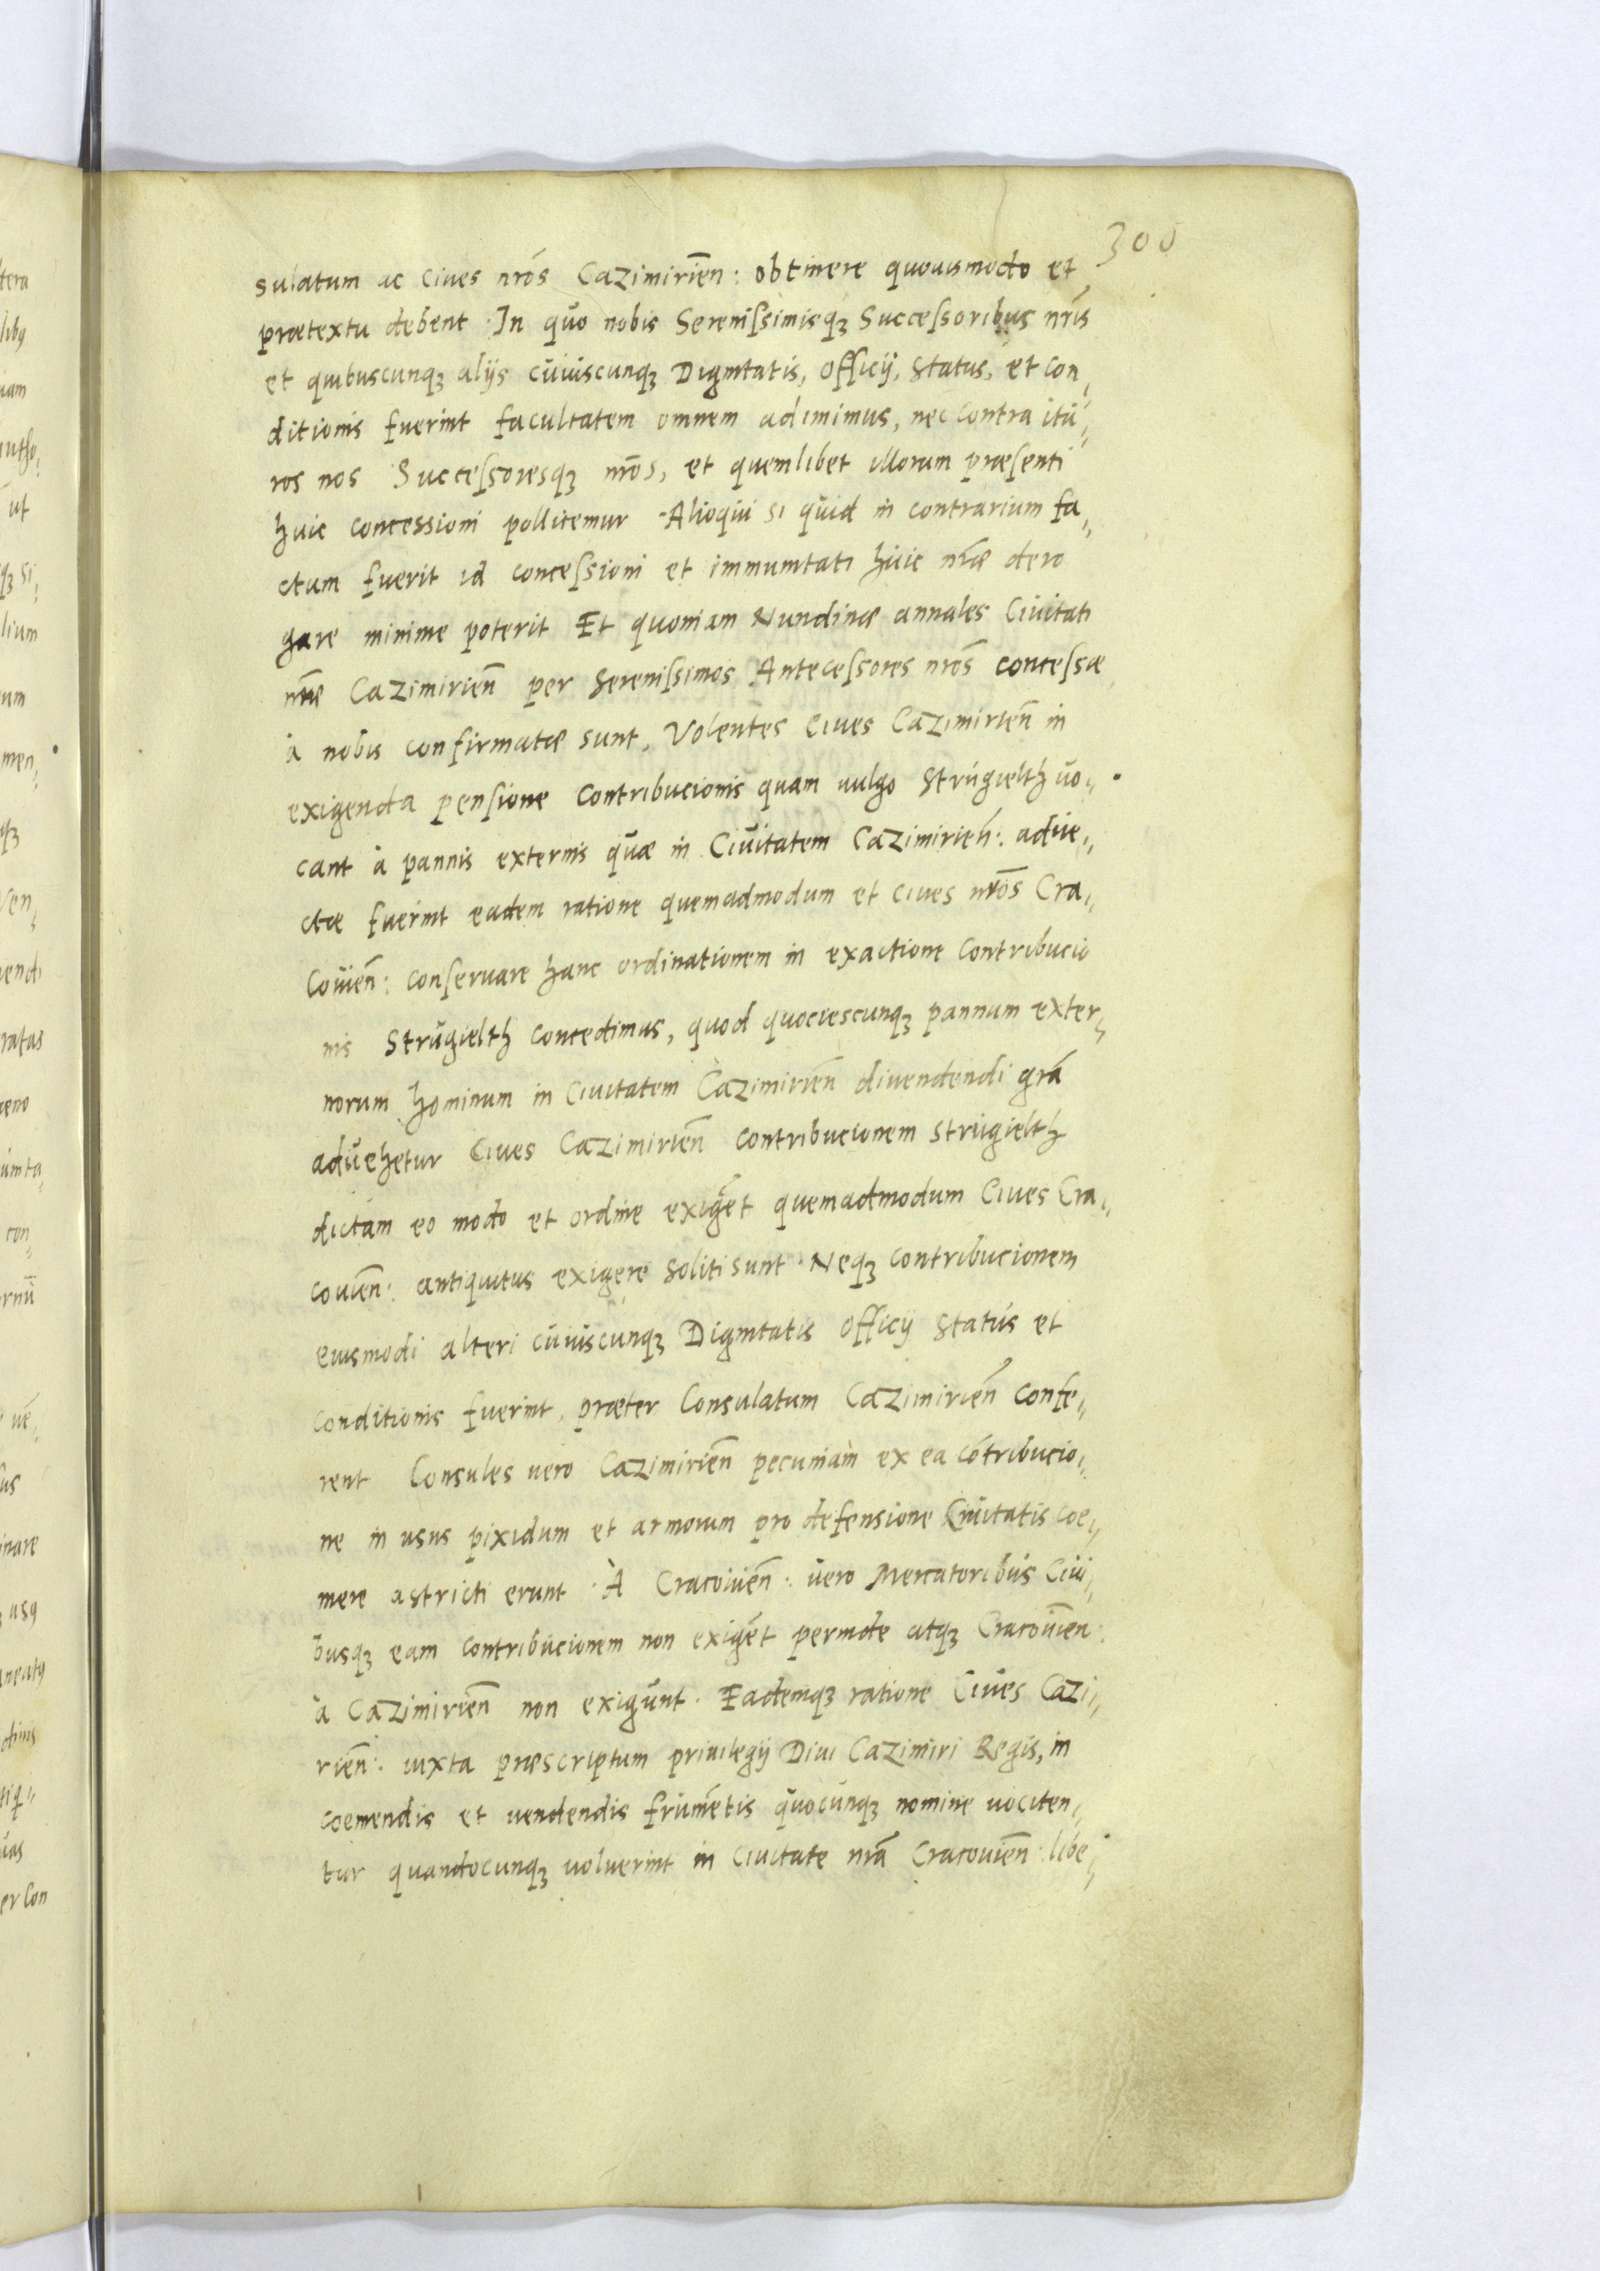 300
sulatum ac Ciues nrōs Cazimiriēn: obtinere quouismodo et
prætextu debent. In quo nobis Sereniſsimisqꝫ Succeſsoribus nrīs
et quibuscunqꝫ alijs cuiuscunqꝫ Dignitatis, Officij, Status, et con„
ditionis fuerint facultatem omnem adimimus, nec contra itu„
ros nos Succeſsoresqꝫ nrōs, et quemlibet illorum præſenti
huic concessioni pollicemur. Alioqui si quid in contrarium fa„
ctum fuerit id conceſsioni et immunitati huic nrāe dero
gare minime poterit Et quoniam Nundinæ annales Ciuitati
nrāe Cazimiriēn per Sereniſsimos Anteceſsores nrōs conceſsæ
à nobis confirmatæ sunt, Volentes Ciues Cazimiriēn in
exigenda penſione contribucionis quam uulgo Strugielth uo„
cant à pannis externis quæ in Ciuitatem Cazimiriēn: adue„
ctæ fuerint eadem ratione quemadmodum et ciues nrōs Cra„
couiēn: conſeruare hanc ordinationem in exactione contribucio
nis Strugielth concedimus, quod quociescunqꝫ pannum exter„
norum hominum in Ciuitatem Cazimiriēn diuendendi grā
aduehetur Ciues Cazimiriēn contribucionem Strugielth
dictam eo modo et ordine exigēt quemadmodum Ciues Cra„
couiēn: antiquitus exigere soliti sunt. Neqꝫ contribucionem
eiusmodi alteri cuiuscunqꝫ Dignitatis Officij Status et
conditionis fuerint, præter Consulatum Cazimiriēn confe„
rent Consules uero Cazimiriēn pecuniam ex ea cōtribucio„
ne in usus pixidum et armorum pro defensione Ciuitatis coe„
mere astricti erunt. À Cracouiēn: uero Mercatoribus Ciui„
busqꝫ eam contribucionem non exigēt perinde atqꝫ Cracouiēn:
à Cazimiriēn non exigunt. Eademqꝫ ratione Ciues Cazi„
riēn: iuxta præscriptum priuilegij Diui Cazimiri Regis, in
coemendis et uendendis frumētis quocunqꝫ nomine uociten„
tur quandocunqꝫ uoluerint in Ciuitate nrā Cracouiēn: libe„